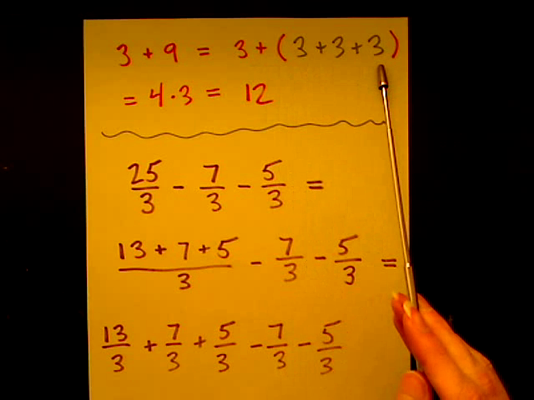 3 + 9 = 3 + (3 + 3 + 3)
= 4 · 3 = 12
25/3 - 7/3 - 5/3 =
(13 + 7 + 5)/3 - 7/3 - 5/3 =
13/3 + 7/3 + 5/3 - 7/3 - 5/3